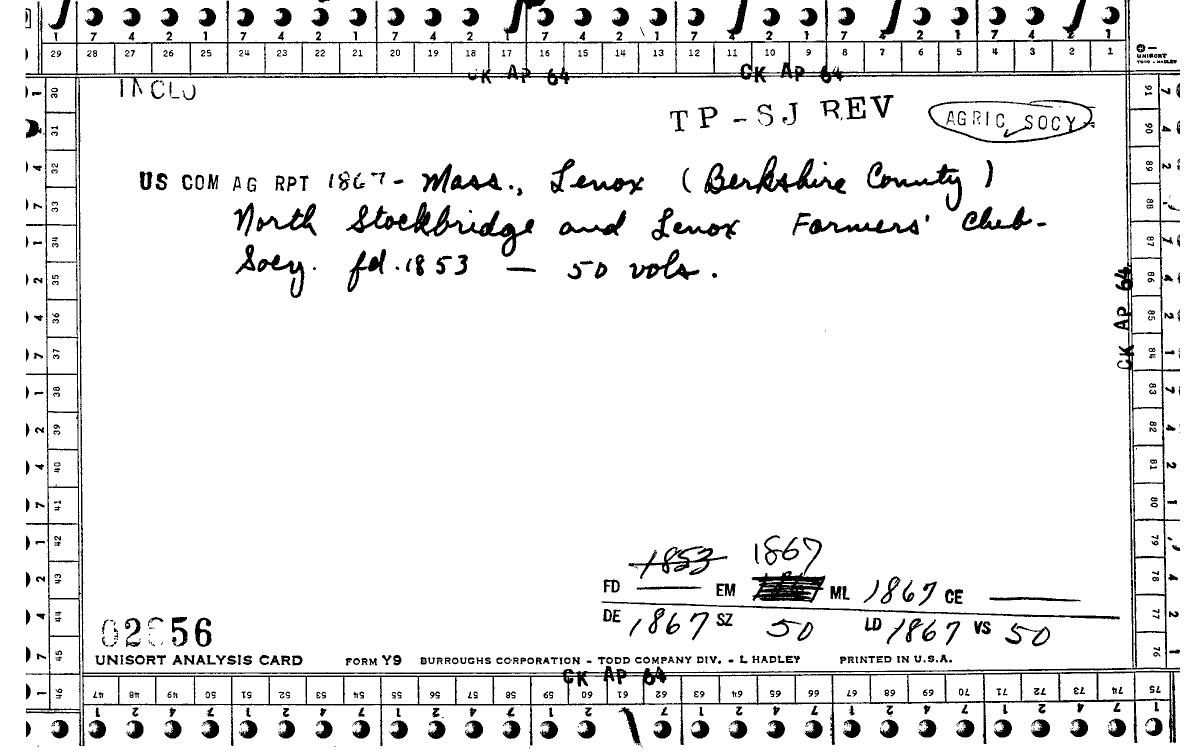 7 4 2 1 7 4 2 1 7 4 2 1 7 4 2 1 7 4 2 1 7 4 2 1 7 4 2 1
29 28 27 26 25 24 23 22 21 20 19 18 17 16 15 14 13 12 11 10 9 8 7 6 5 4 3 2 1
UNISORT
TODD - HADLEY
CK AP 64 CK AP 64
INCLU
TP-SJ REV AGRIC SOCY
US COM AG RPT 1867 - Mass., Lenox (Berkshire County)
North Stockbridge and Lenox Farmers' Club -
Socy. fd. 1853 — 50 vols.
30 31 32 33 34 35 36 37 38 39 40 41 42 43 44 45 46
91 90 89 88 87 86 85 84 83 82 81 80 79 78 77 76 75
CK AP 64
1853 1867
FD EM ML 1867 CE
DE 1867 SZ 50 LD 1867 VS 50
UNISORT ANALYSIS CARD FORM Y9 BURROUGHS CORPORATION - TODD COMPANY DIV. - L HADLEY PRINTED IN U.S.A.
CK AP 64
47 48 49 50 51 52 53 54 55 56 57 58 59 60 61 62 63 64 65 66 67 68 69 70 71 72 73 74